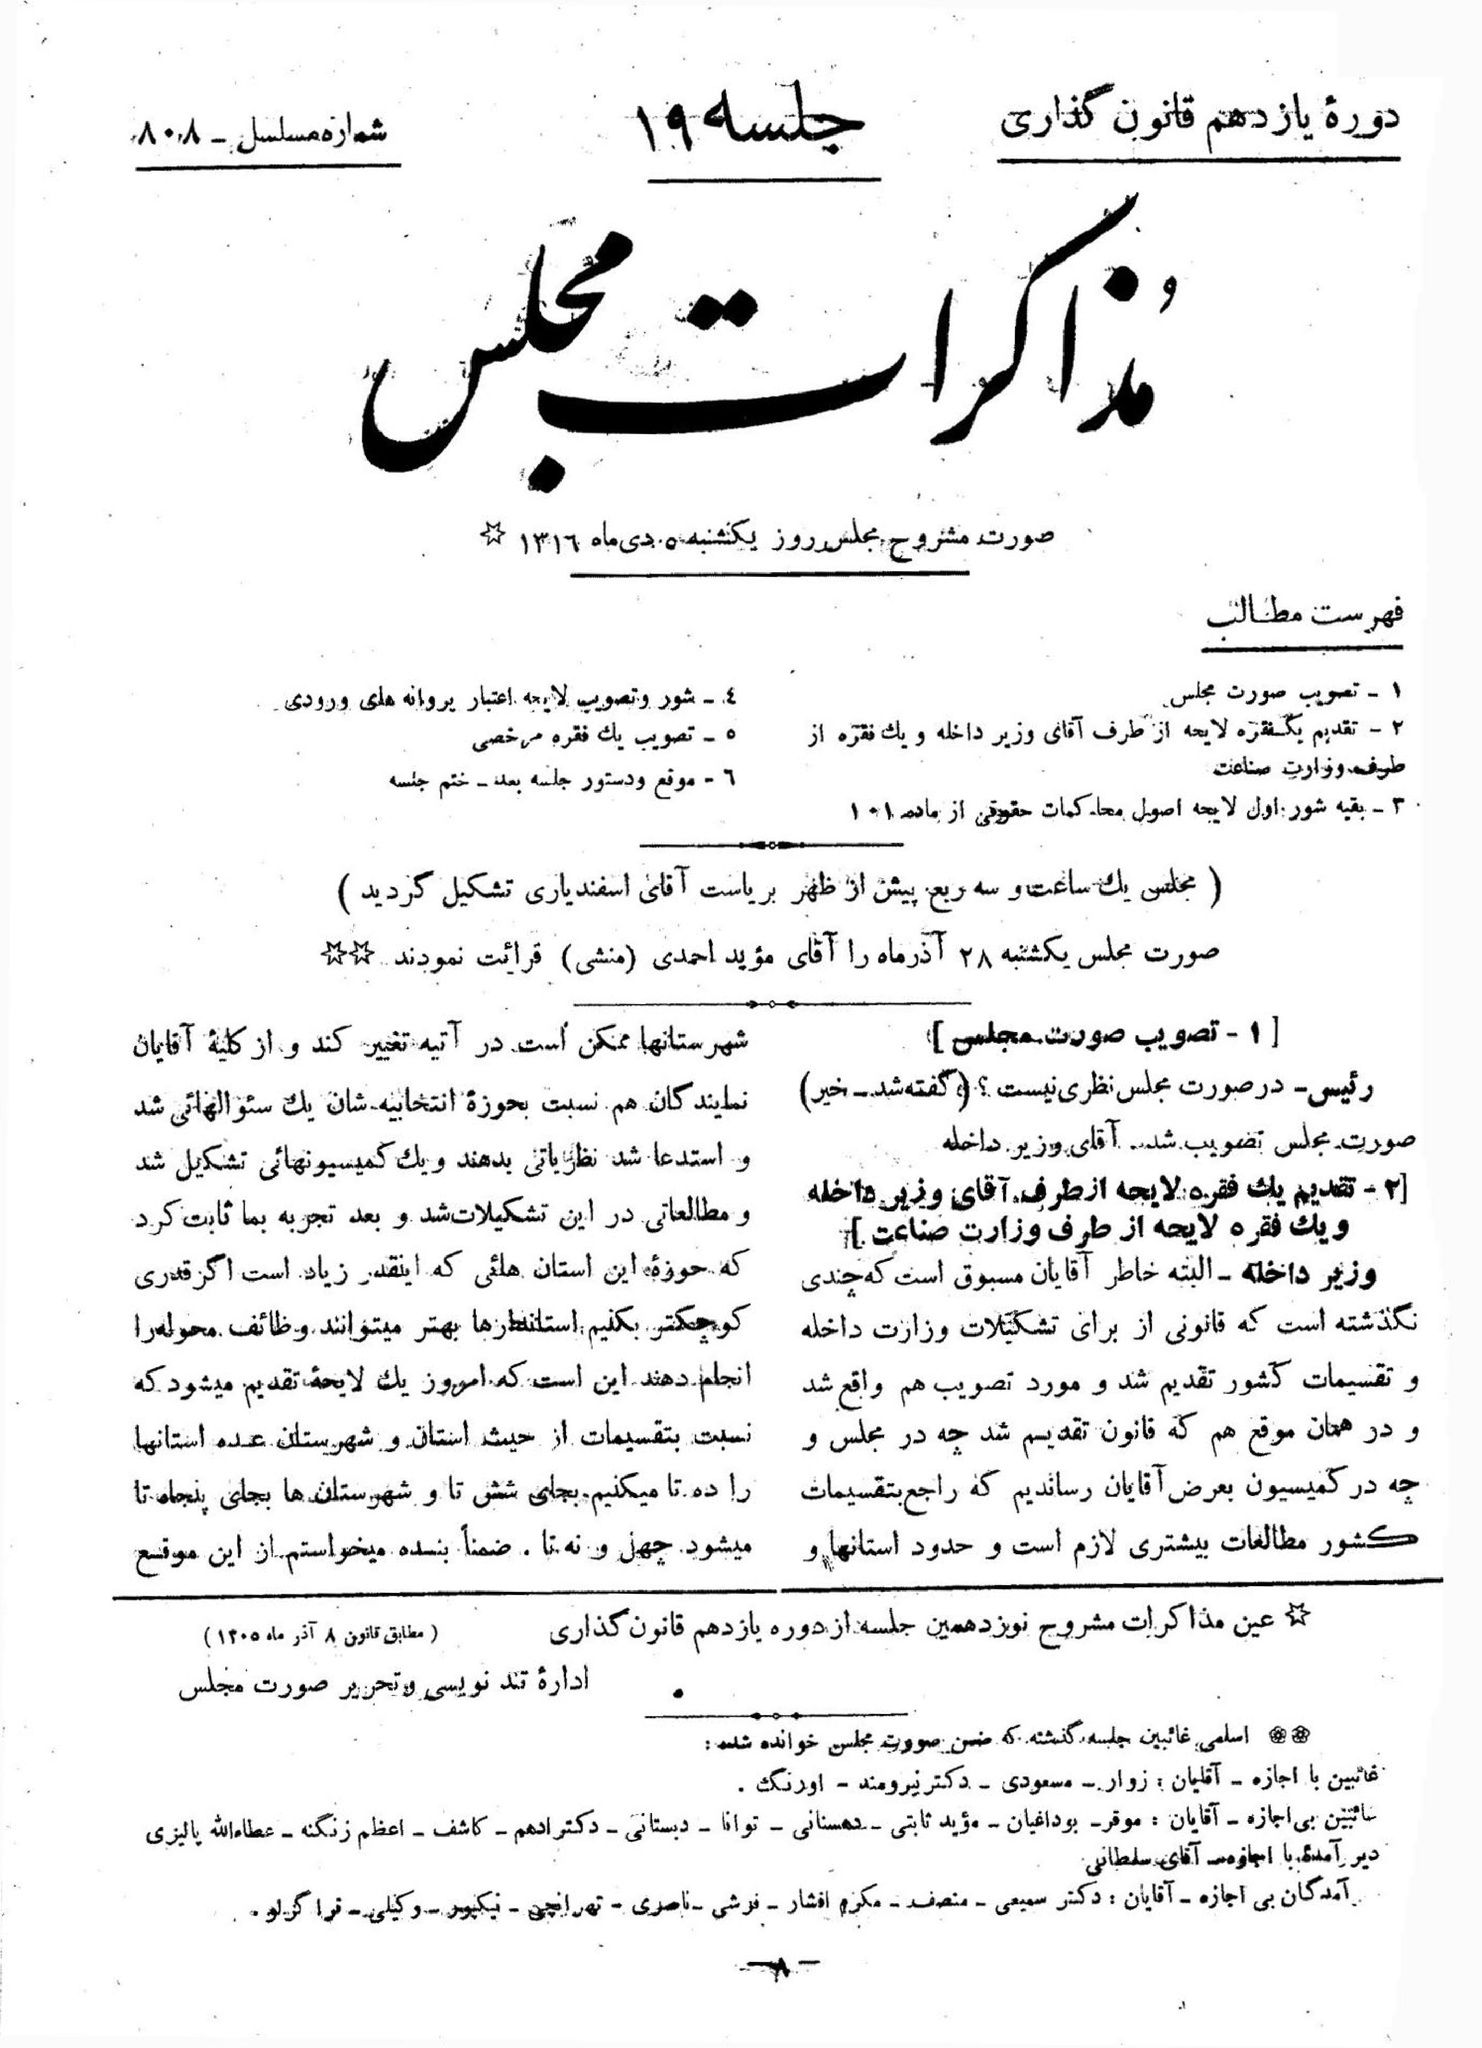 دورهٔ یازدهم قانون گذاری
جلسه ۱۹
شماره مسلسل ـ ۸۰۸
مذاکرات مجلس
صورت مشروح مجلس روز یکشنبه ۵ دی ماه ۱۳۱۶ ☆
فهرست مطالب
۱ ـ تصویب صورت مجلس
۲ ـ تقدیم یکفقره لایحه از طرف آقای وزیر داخله و یك فقره از
طرف وزارت صناعت
۳ ـ بقیه شور اول لایحه اصول محاکمات حقوقی از ماده ۱۰۱
٤ ـ شور و تصویب لایحه اعتبار پروانه های ورودی
۵ ـ تصویب یك فقره مرخصی
٦ ـ موقع و دستور جلسه بعد ـ ختم جلسه
( مجلس یك ساعت و سه ربع پیش از ظهر بریاست آقای اسفندیاری تشکیل گردید )
صورت مجلس یکشنبه ۲۸ آذرماه را آقای مؤید احمدی (منشی) قرائت نمودند ☆☆
[ ۱ - تصویب صورت مجلس ]
رئیس ـ در صورت مجلس نظری نیست؟ (گفته شد ـ خیر)
صورت مجلس تصویب شد. آقای وزیر داخله
[۲ - تقدیم یك فقره لایحه از طرف آقای وزیر داخله
و یك فقره لایحه از طرف وزارت صناعت ]
وزیر داخله ـ البته خاطر آقایان مسبوق است که چندی
نگذشته است که قانونی از برای تشکیلات وزارت داخله
و تقسیمات کشور تقدیم شد و مورد تصویب هم واقع شد
و در همان موقع هم که قانون تقدیم شد چه در مجلس و
چه در کمیسیون بعرض آقایان رساندیم که راجع بتقسیمات
کشور مطالعات بیشتری لازم است و حدود استانها و
شهرستانها ممکن است در آتیه تغییر کند و از کلیهٔ آقایان
نمایندگان هم نسبت بحوزهٔ انتخابیه شان یك سئوالهائی شد
و استدعا شد نظریاتی بدهند و یك کمیسیونهائی تشکیل شد
و مطالعاتی در این تشکیلات شد و بعد تجربه بما ثابت کرد
که حوزهٔ این استان هائی که اینقدر زیاد است اگر قدری
کوچکتر بکنیم استاندارها بهتر میتوانند وظائف محوله را
انجام دهند این است که امروز یك لایحهٔ تقدیم میشود که
نسبت بتقسیمات از حیث استان و شهرستان عده استانها
را ده تا میکنیم بجای شش تا و شهرستان ها بجای پنجاه تا
میشود چهل و نه تا . ضمناً بنده میخواستم از این موقع
☆ عین مذاکرات مشروح نوزدهمین جلسه از دوره یازدهم قانون گذاری
( مطابق قانون ۸ آذر ماه ۱۳۰۵ )
ادارهٔ تند نویسی و تحریر صورت مجلس
اسامی غائبین جلسه گذشته که ضمن صورت مجلس خوانده شده :
غائبین با اجازه ـ آقایان : زوار ـ مسعودی ـ دکتر نیرومند ـ اورنگ .
غائبین بی اجازه ـ آقایان : موقر ـ بوداغیان ـ مؤید ثابتی ـ دهستانی ـ توانا ـ دبستانی ـ دکتر ادهم ـ کاشف ـ اعظم زنگنه ـ عطاءالله پالیزی
دیر آمدهٔ با اجازه ـ آقای سلطانی
آمدگان بی اجازه ـ آقایان : دکتر سمیعی ـ منصف ـ مکرم افشار ـ فرشی ـ ناصری ـ تهرانچی ـ نیکپور ـ وکیلی ـ قراگزلو .
ـ ۸ ـ